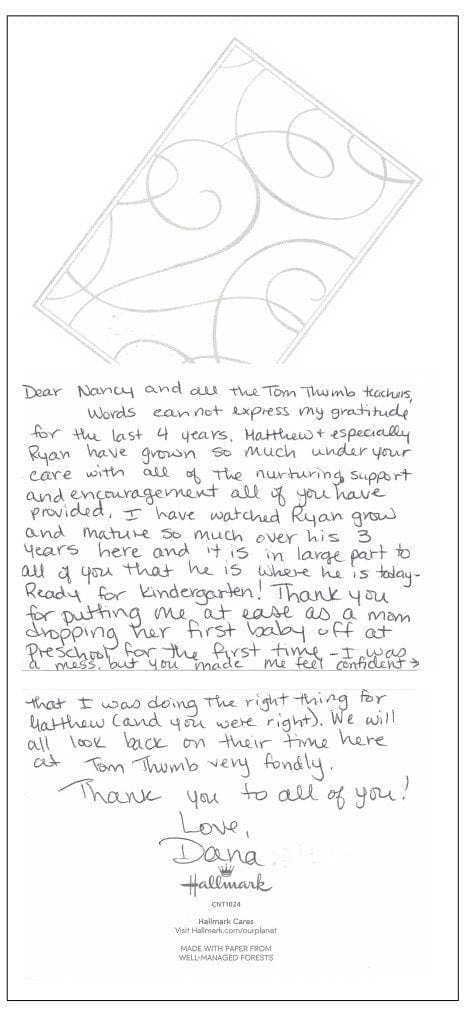 Dear Nancy and all the Tom Thumb teachers,
Words cannot express my gratitude
for the last 4 years. Matthew + especially
Ryan have grown so much under your
care with all of the nurturing, support
and encouragement all of you have
provided. I have watched Ryan grow
and mature so much over his 3
years here and it is in large part to
all of you that he is where he is today-
Ready for kindergarten! Thank you
for putting me at ease as a mom
dropping her first baby off at
Preschool for the first time - I was
a mess, but you made me feel confident →
that I was doing the right thing for
Matthew (and you were right). We will
all look back on their time here
at Tom Thumb very fondly.
Thank you to all of you!
Love,
Dana
Hallmark
CNT1024
Hallmark Cares
Visit Hallmark.com/ourplanet
MADE WITH PAPER FROM
WELL-MANAGED FORESTS